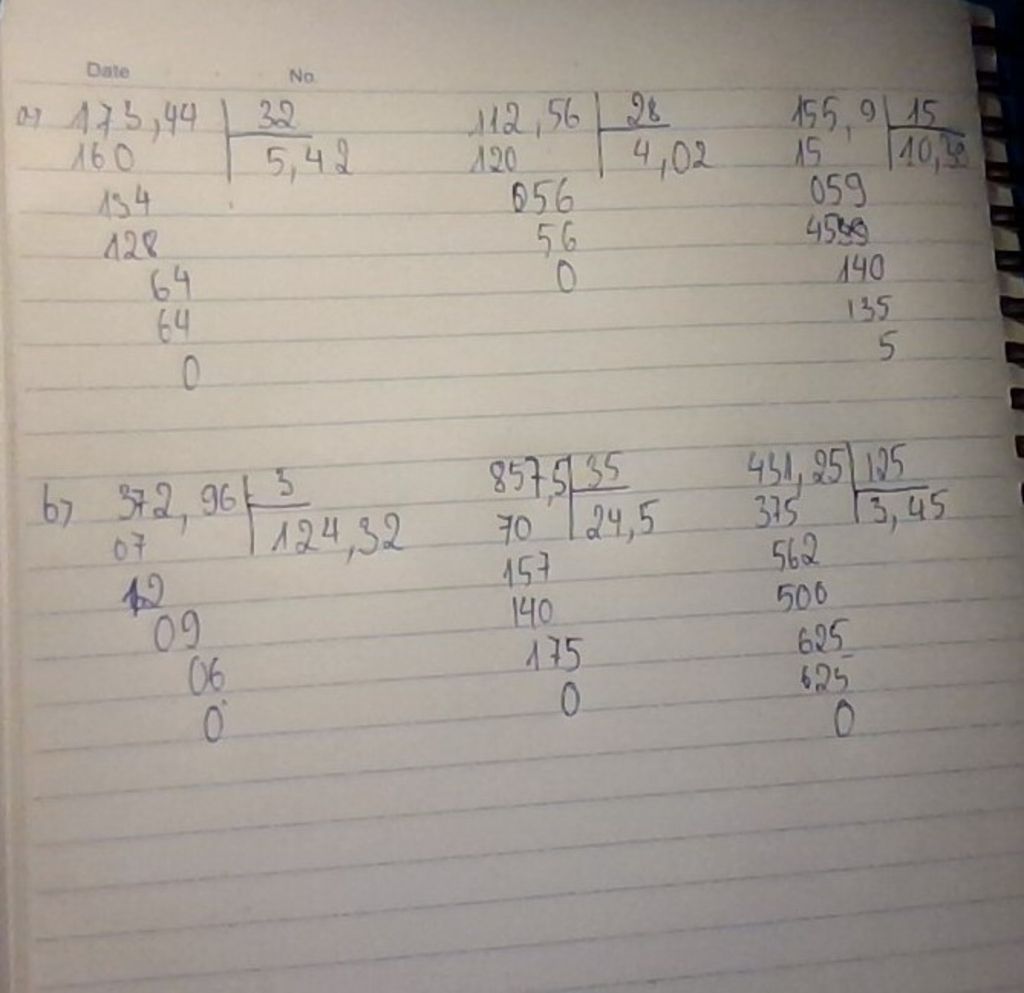 Date No
a) 173,44 32 112,56 28 155,9 15
160 5,42 120 4,02 15
134 056 059
128 56
64 0 140
64 135
0 5
b) 372,96 3 857,5 35 431,25 125
07 124,32 70 24,5 375 3,45
12 157 562
09 140 500
06 175 625
0 0 625
0